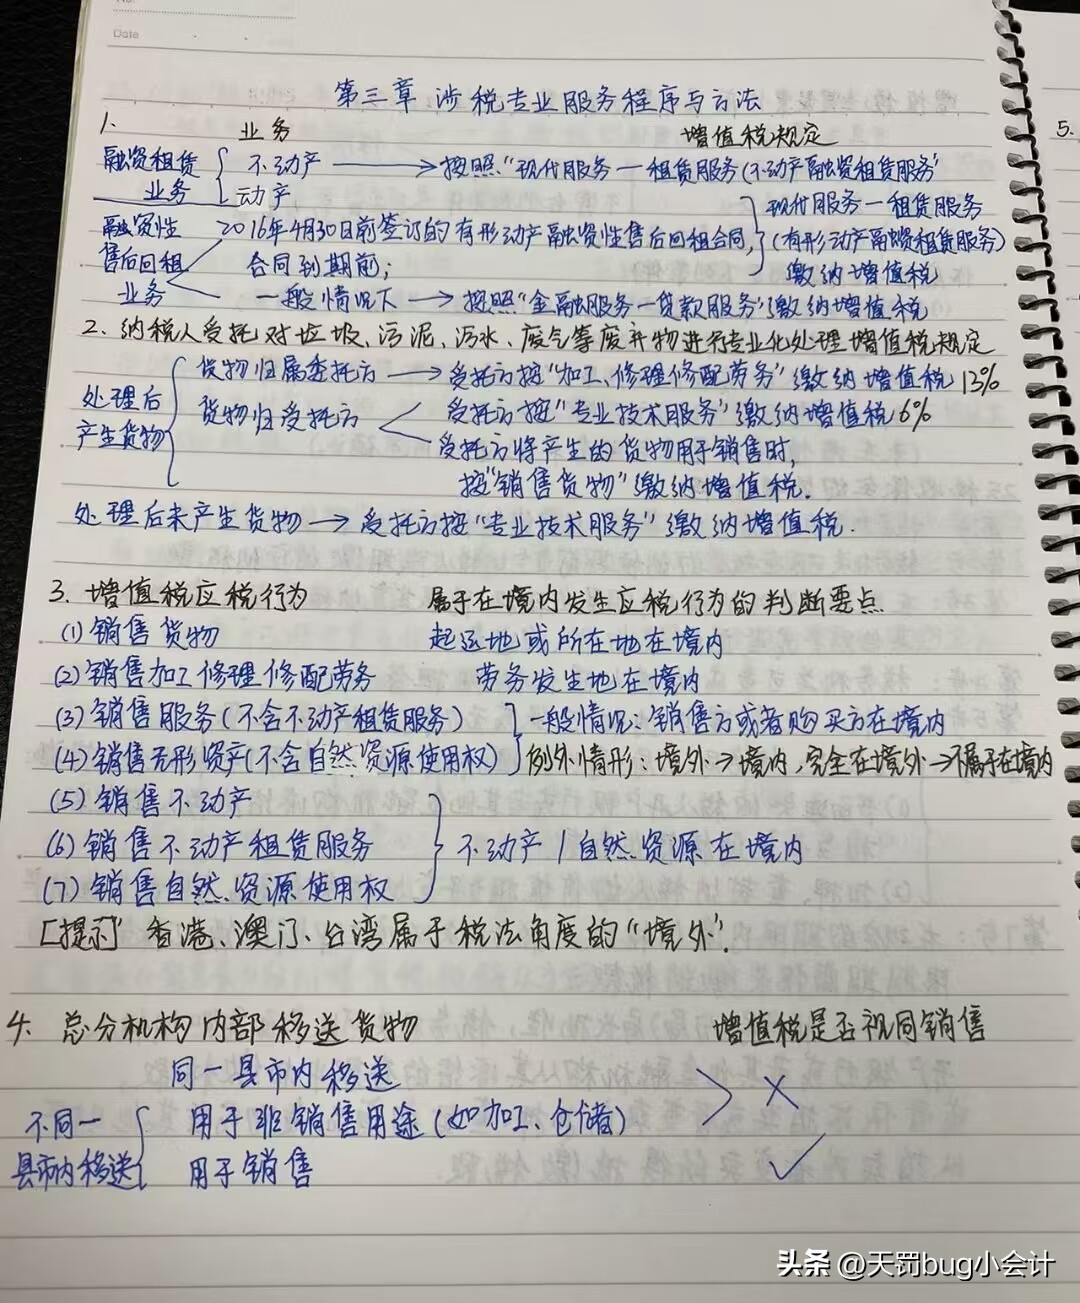 No.
Date
第三章 涉税专业服务程序与方法
1. 业务 增值税规定
融资租赁 不动产 → 按照“现代服务一租赁服务(不动产融资租赁服务”
业务 动产 现代服务一租赁服务
融资性 2016年4月30日前签订的有形动产融资性售后回租合同, (有形动产融资租赁服务)
售后回租 合同到期前; 缴纳增值税
业务 一般情况下 → 按照“金融服务一贷款服务”缴纳增值税
2. 纳税人受托对垃圾、污泥、污水、废气等废弃物进行专业化处理增值税规定
货物归属委托方 → 受托方按“加工、修理修配劳务”缴纳增值税 13%
处理后 货物归受托方 受托方按“专业技术服务”缴纳增值税 6%
产生货物 受托方将产生的货物用于销售时,
按“销售货物”缴纳增值税.
处理后未产生货物 → 受托方按“专业技术服务”缴纳增值税.
3. 增值税应税行为 属于在境内发生应税行为的判断要点
(1) 销售货物 起运地或所在地在境内
(2) 销售加工修理修配劳务 劳务发生地在境内
(3) 销售服务(不含不动产租赁服务) 一般情况:销售方或者购买方在境内
(4) 销售无形资产(不含自然资源使用权) 例外情形:境外→境内,完全在境外→不属于在境内
(5) 销售不动产
(6) 销售不动产租赁服务 不动产/自然资源在境内
(7) 销售自然资源使用权
[提示] 香港、澳门、台湾属于税法角度的“境外”.
4. 总分机构内部移送货物 增值税是否视同销售
同一县市内移送
不同一 用于非销售用途(如加工、仓储) ×
县市内移送 用于销售 ✓
5.
头条 @天罚bug小会计